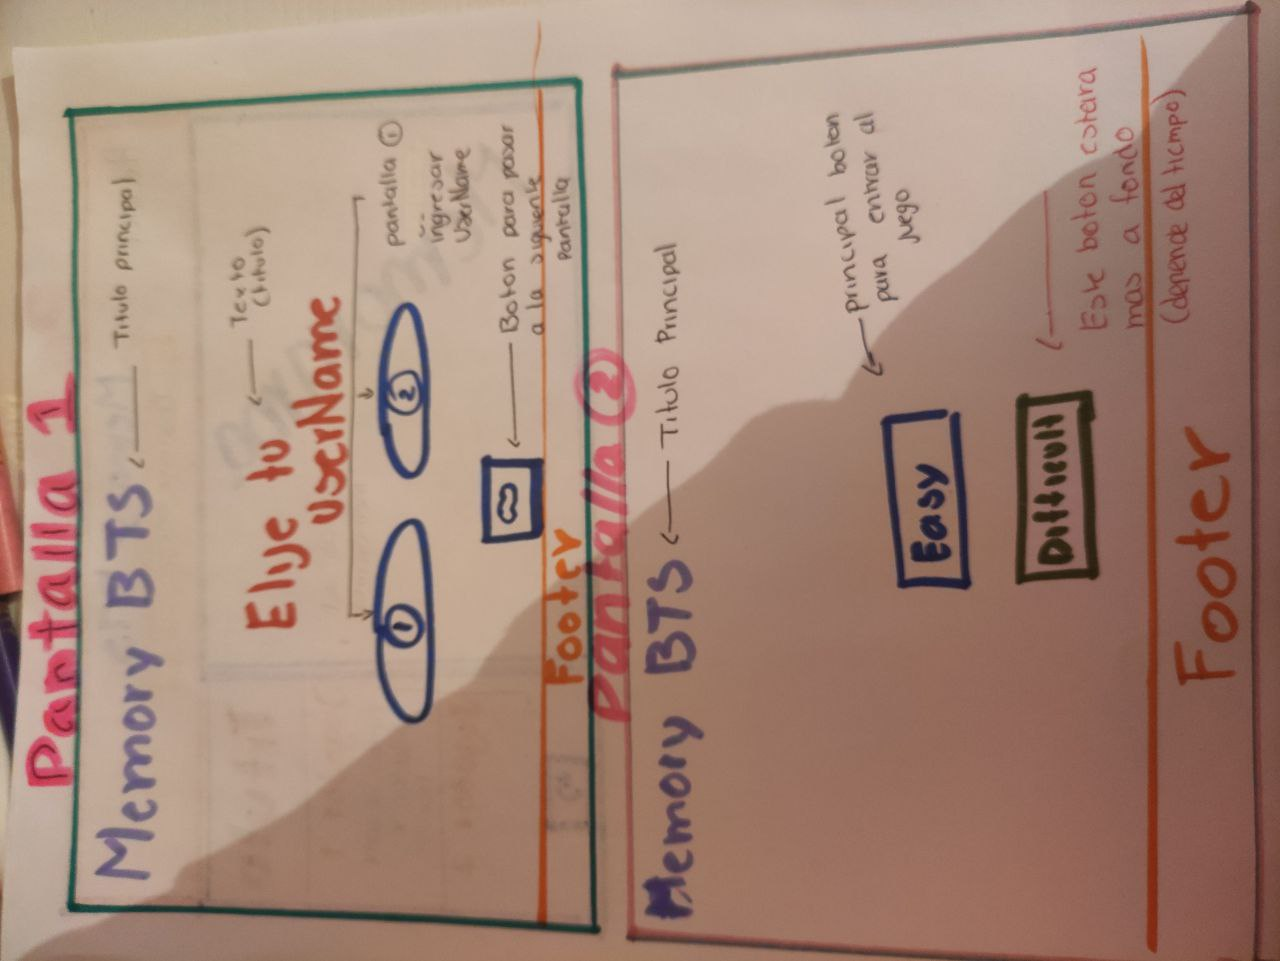 Pantalla 1
Memory BTS
Titulo principal
Texto
(titulo)
Elije tu
UserName
1
2
pantalla 1
ingresar
UserName
Boton para pasar
a la siguiente
pantalla
Footer
Pantalla 2
Memory BTS
Titulo Principal
principal boton
para entrar al
juego
Easy
Difficult
Este boton estara
mas a fondo
(depende del tiempo)
Footer